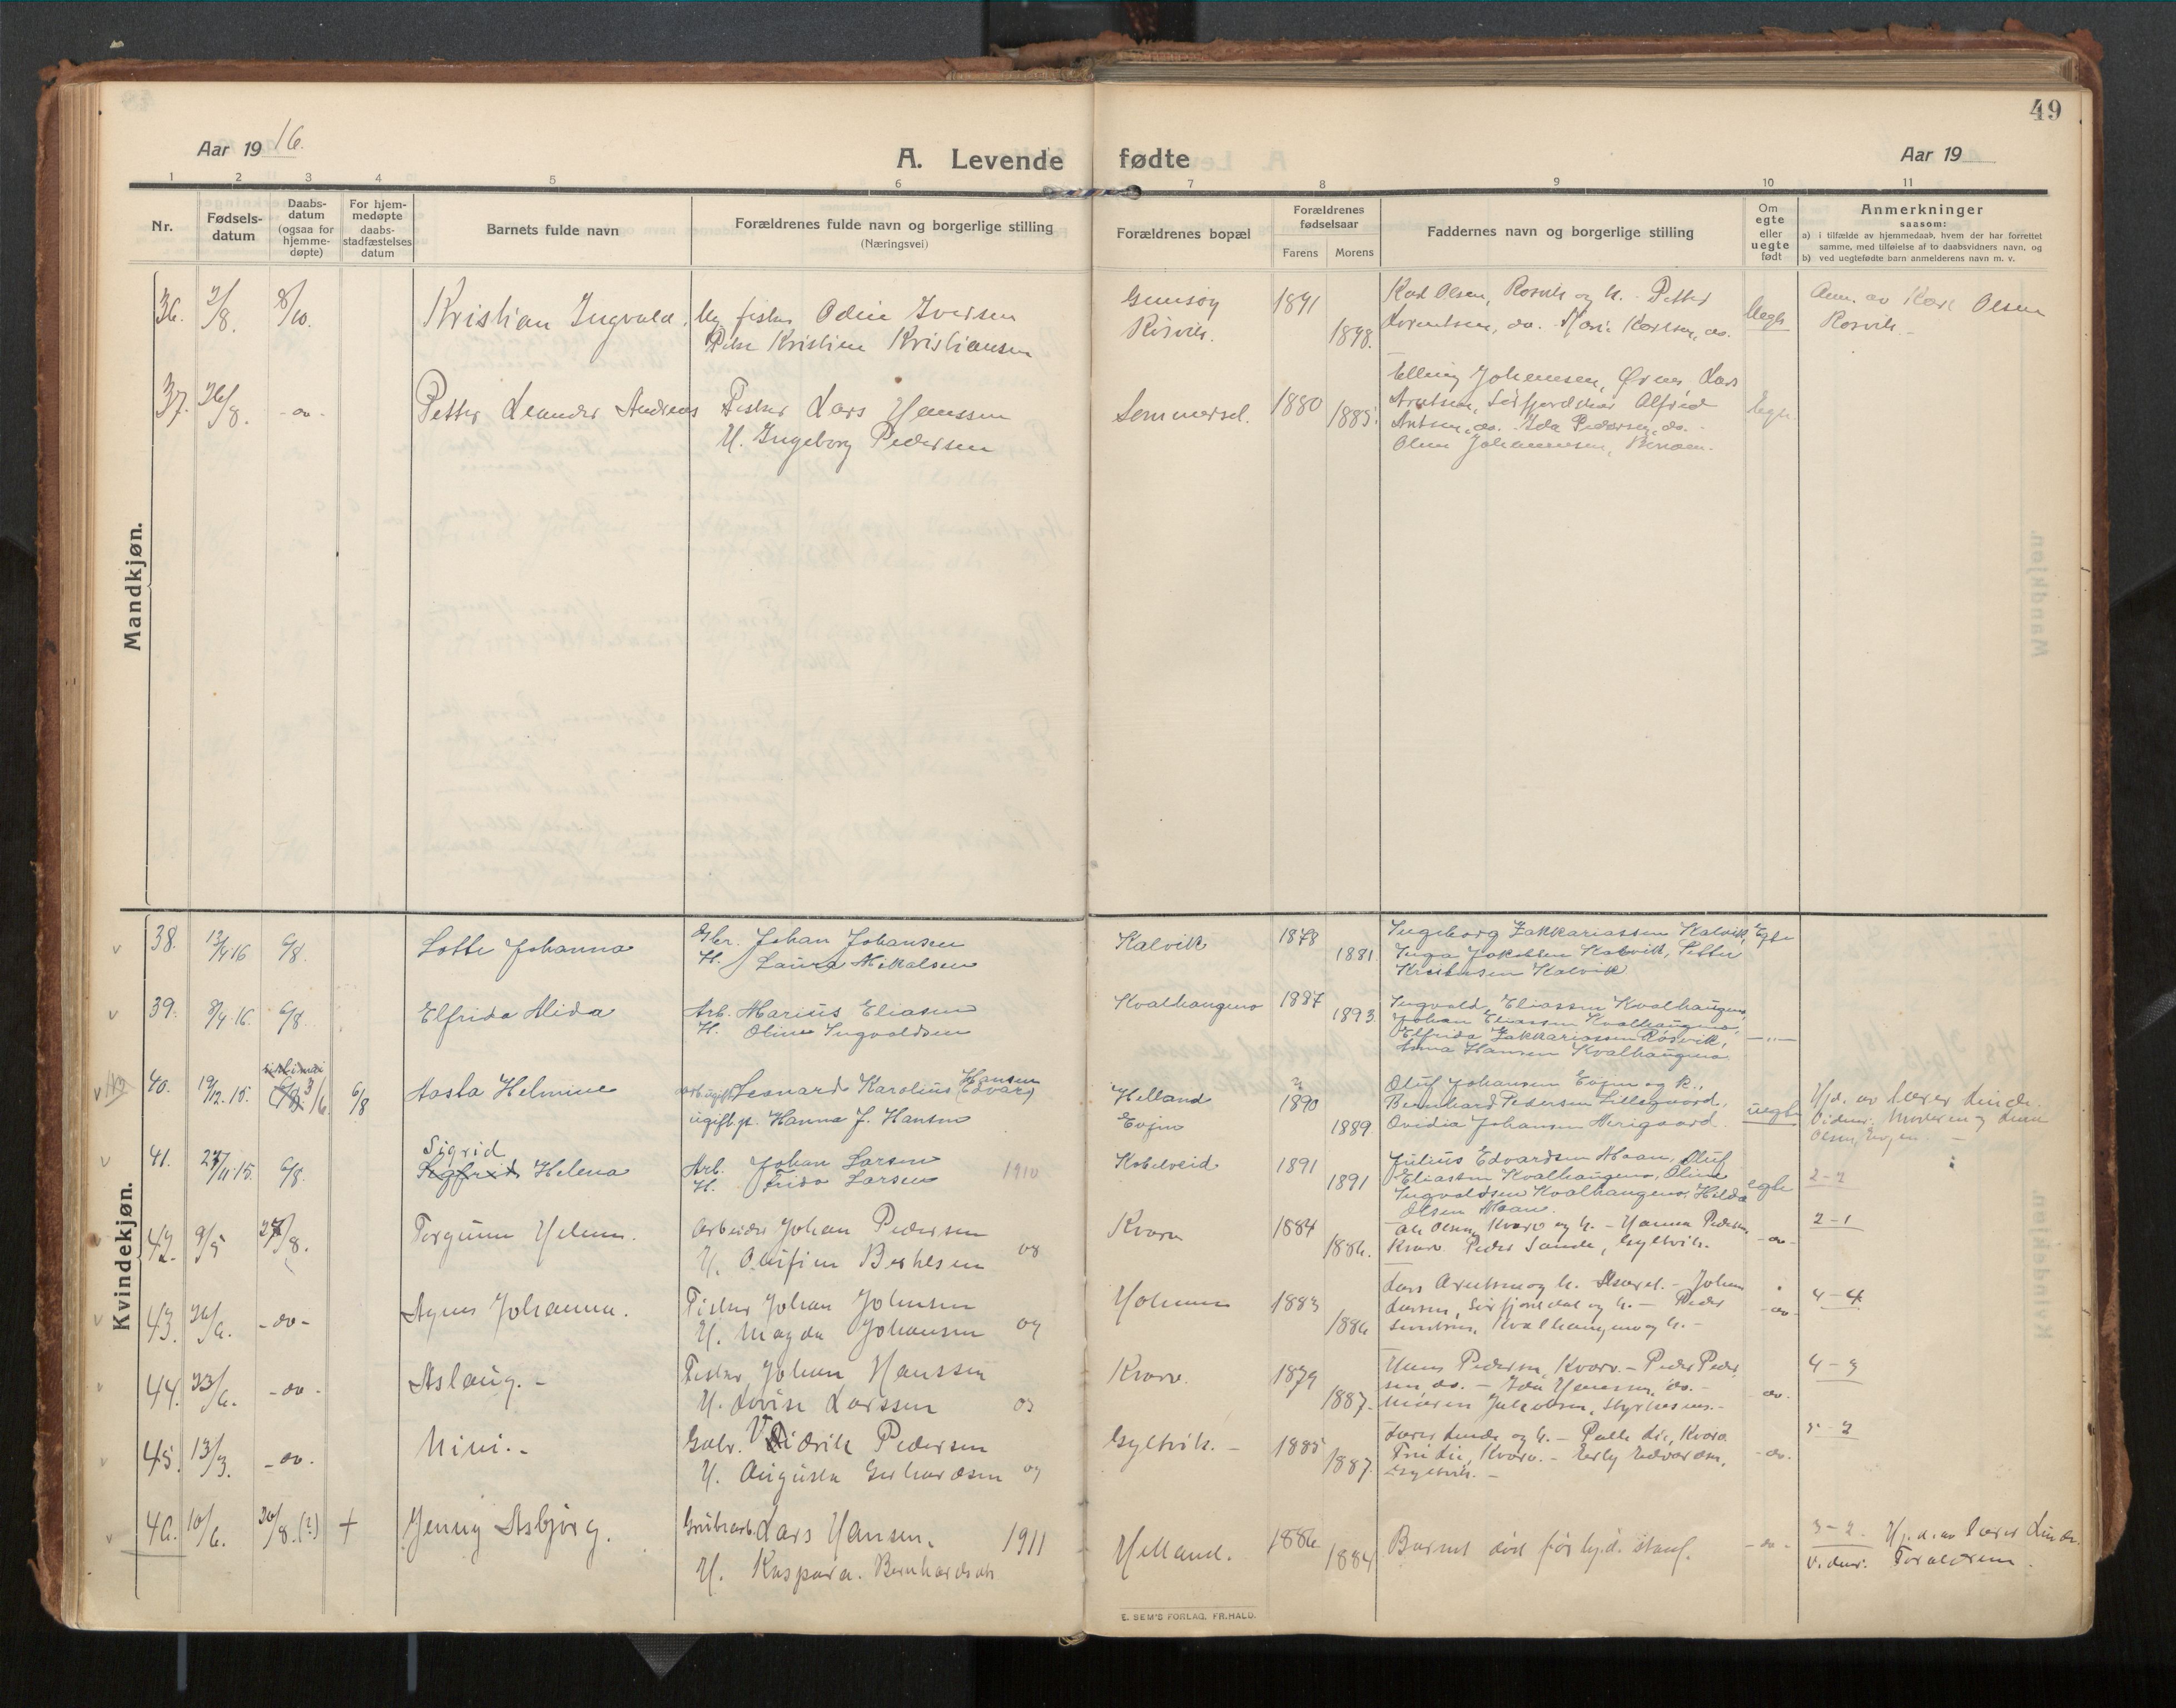 49
Aar 19 16.
A. Levende fødte
Aar 19
1 2 3 4 5 6 7 8 9 10 11
Nr.
Fødsels-
datum
Daabs-
datum
(ogsaa for
hjemme-
døpte)
For hjem-
medøpte
daabs-
stadfæstelses
datum
Barnets fulde navn
Forældrenes fulde navn og borgerlige stilling
(Næringsvei)
Forældrenes bopæl
Forældrenes
fødselsaar
Farens Morens
Faddernes navn og borgerlige stilling
Om
egte
eller
uegte
født
Anmerkninger
saasom:
a) i tilfælde av hjemmedaab, hvem der har forrettet
samme, med tilføielse af to daabsvidners navn, og
b) ved uegtefødte barn anmelderens navn m. v.
Mandkjøn.
36. 2/8. 8/10. Kristian Ingvald. Ug fisker Odin Iversen
Pike Kristine Kristiansen
Gimsøy
Rørvik.
1891
1898.
Karl Olsen, Rosvik og h. Petter
Lorentsen, do. Marie Karlsen, do.
Uegte
Anm. av Karl Olsen
Rosvik. -
37. 26/8. - do - Petter Leander Andreas Fisker Lars Hanssen
H. Ingeborg Pedersen
Sommersel.
1880
1885.
Elling Johansen, Ørnes Lars
Arntsen, Sørfjordskar Alfred
Arntsen, do. Ida Pedersen, do. -
Oline Johannesen,
Kvindekjøn.
38. 13/4 16 6/8. Lotte Johanna Gbr. Johan Johansen
H. Laura Mikalsen
Kalvik
1878
1881
Ingeborg Zakkariassen Kalvik,
Inga Jakobsen Kalvik, Petter
Kristensen Kalvik
Egte
39. 8/4 16. 6/8. Elfrida Alida Arb. Marius Eliasen
H. Oline Ingvaldsen
Kvalhaugmo
1887
1893.
Ingvald Eliassen Kvalhaugmo,
Johan Eliassen Kvalhaugmo,
Elfrida Zakkariassen Rosvik,
Anna Hansen Kvalhaugmo
- " -
40. 19/12. 15. 3/6 6/8 Aasta Helmine arb. ugift Leonard Karolius Hansen (Edvard)
ugift p. Hanna J. Hansen
Helland
Evjen
1890
1889.
Oluf Johansen Evjen og k.,
Bernhard Pedersen Lillegaard,
Ovidia Johansen Merigaard.
uegte
Hjd. av lærer Linde.
Vidner: Moderen og
Olsen, Evjen. -
41. 27/11. 15. 6/8. Sigrid
Sigfrid Helena Arb. Johan Larsen
H. Frida Larsen 1910
Kobelveid
1891
1891
Julius Edvardsen Maan, Oluf
Eliassen Kvalhaugmo, Oline
Ingvaldsen Kvalhaugmo, Hilda
Olsen Maan.
egte
2-2
42. 9/5 27/8. Torgunn Helene. Arbeider Johan Pedersen
H. Olufine Berthesen 08
Kvarv
1884
1886.
Ole Olsen, Kvarv og h. - Hanna Pedersen,
Kvarv. Peder Sande, Gyltvik.
- do -
2-1
43. 26/6. - do - Agnes Johanna. Fisker Johan Johnsen
H. Magda Johansen 09
Holmen
1883
1886
Lars Arntsen og h. - Johan
Larsen, Sørfjordskar og h. - Peder
Kvalhaugmo og h. -
- do -
4-4
44. 23/6. - do - Aslaug. - Fisker Johan Hanssen
H. Lovise Larssen 03
Kvarv.
1879
1887.
Hans Pedersen, Kvarv. - Peder Peder-
sen, do. - Ida Hanssen, do. -
Maren Jakobsen, Styrkesnes. -
- do -
4-3
45. 13/3. - do - Mini. - Gabr. Vidrik Pedersen
H. Augusta Gerhardsen 09
Gyltvik. -
1885
1887.
Lærer Linde og h. - Palle Lie, Kvarv
Fru Lie, Kvarv. - Erly Edvardsen,
Gyltvik. -
- do -
5-2
46. 10/6. 30/8. (?) + Jenny Asbjørg. Grubearb. Lars Hansen. 1911
H. Kaspara. Bernhardsdt.
Helland.
1886
1884
Barnet død før hj.d. stadf.
- do -
3-2. Hj.d. av lærer Linde.
Vidner: Forældrene.
E. SEM'S FORLAG, FR.HALD.